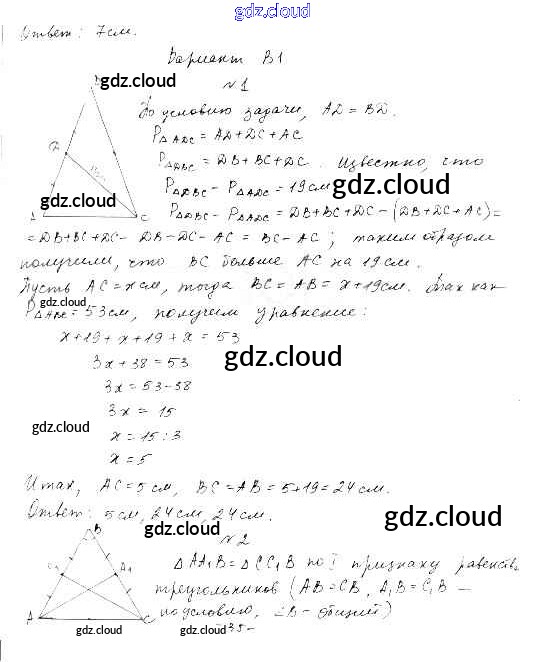 gdz.cloud
Ответ: 7 см.
Вариант В1
gdz.cloud
№1
По условию задачи, AD = BD.
D
P△ADC = AD + DC + AC
P△DBC = DB + BC + DC. Известно, что
gdz.cloud
P△DBC − P△ADC = 19 см
gdz.cloud
A C
P△DBC − P△ADC = DB + BC + DC − (DB + DC + AC) =
= DB + BC + DC − DB − DC − AC = BC − AC; таким образом
получили, что BC больше AC на 19 см.
Пусть AC = x см, тогда BC = AB = x + 19 см. Так как
gdz.cloud
P△ABC = 53 см, получим уравнение:
x + 19 + x + 19 + x = 53
3x + 38 = 53
gdz.cloud
3x = 53 − 38
3x = 15
gdz.cloud
x = 15 : 3
x = 5
Итак, AC = 5 см, BC = AB = 5 + 19 = 24 см.
Ответ: 5 см, 24 см, 24 см.
gdz.cloud
B
№2
gdz.cloud
△AA₁B = △CC₁B по I признаку равенств
C₁ A₁
треугольников (AB = CB, A₁B = C₁B —
A C
по условию, ∠B − общий)
gdz.cloud gdz.cloud
35-